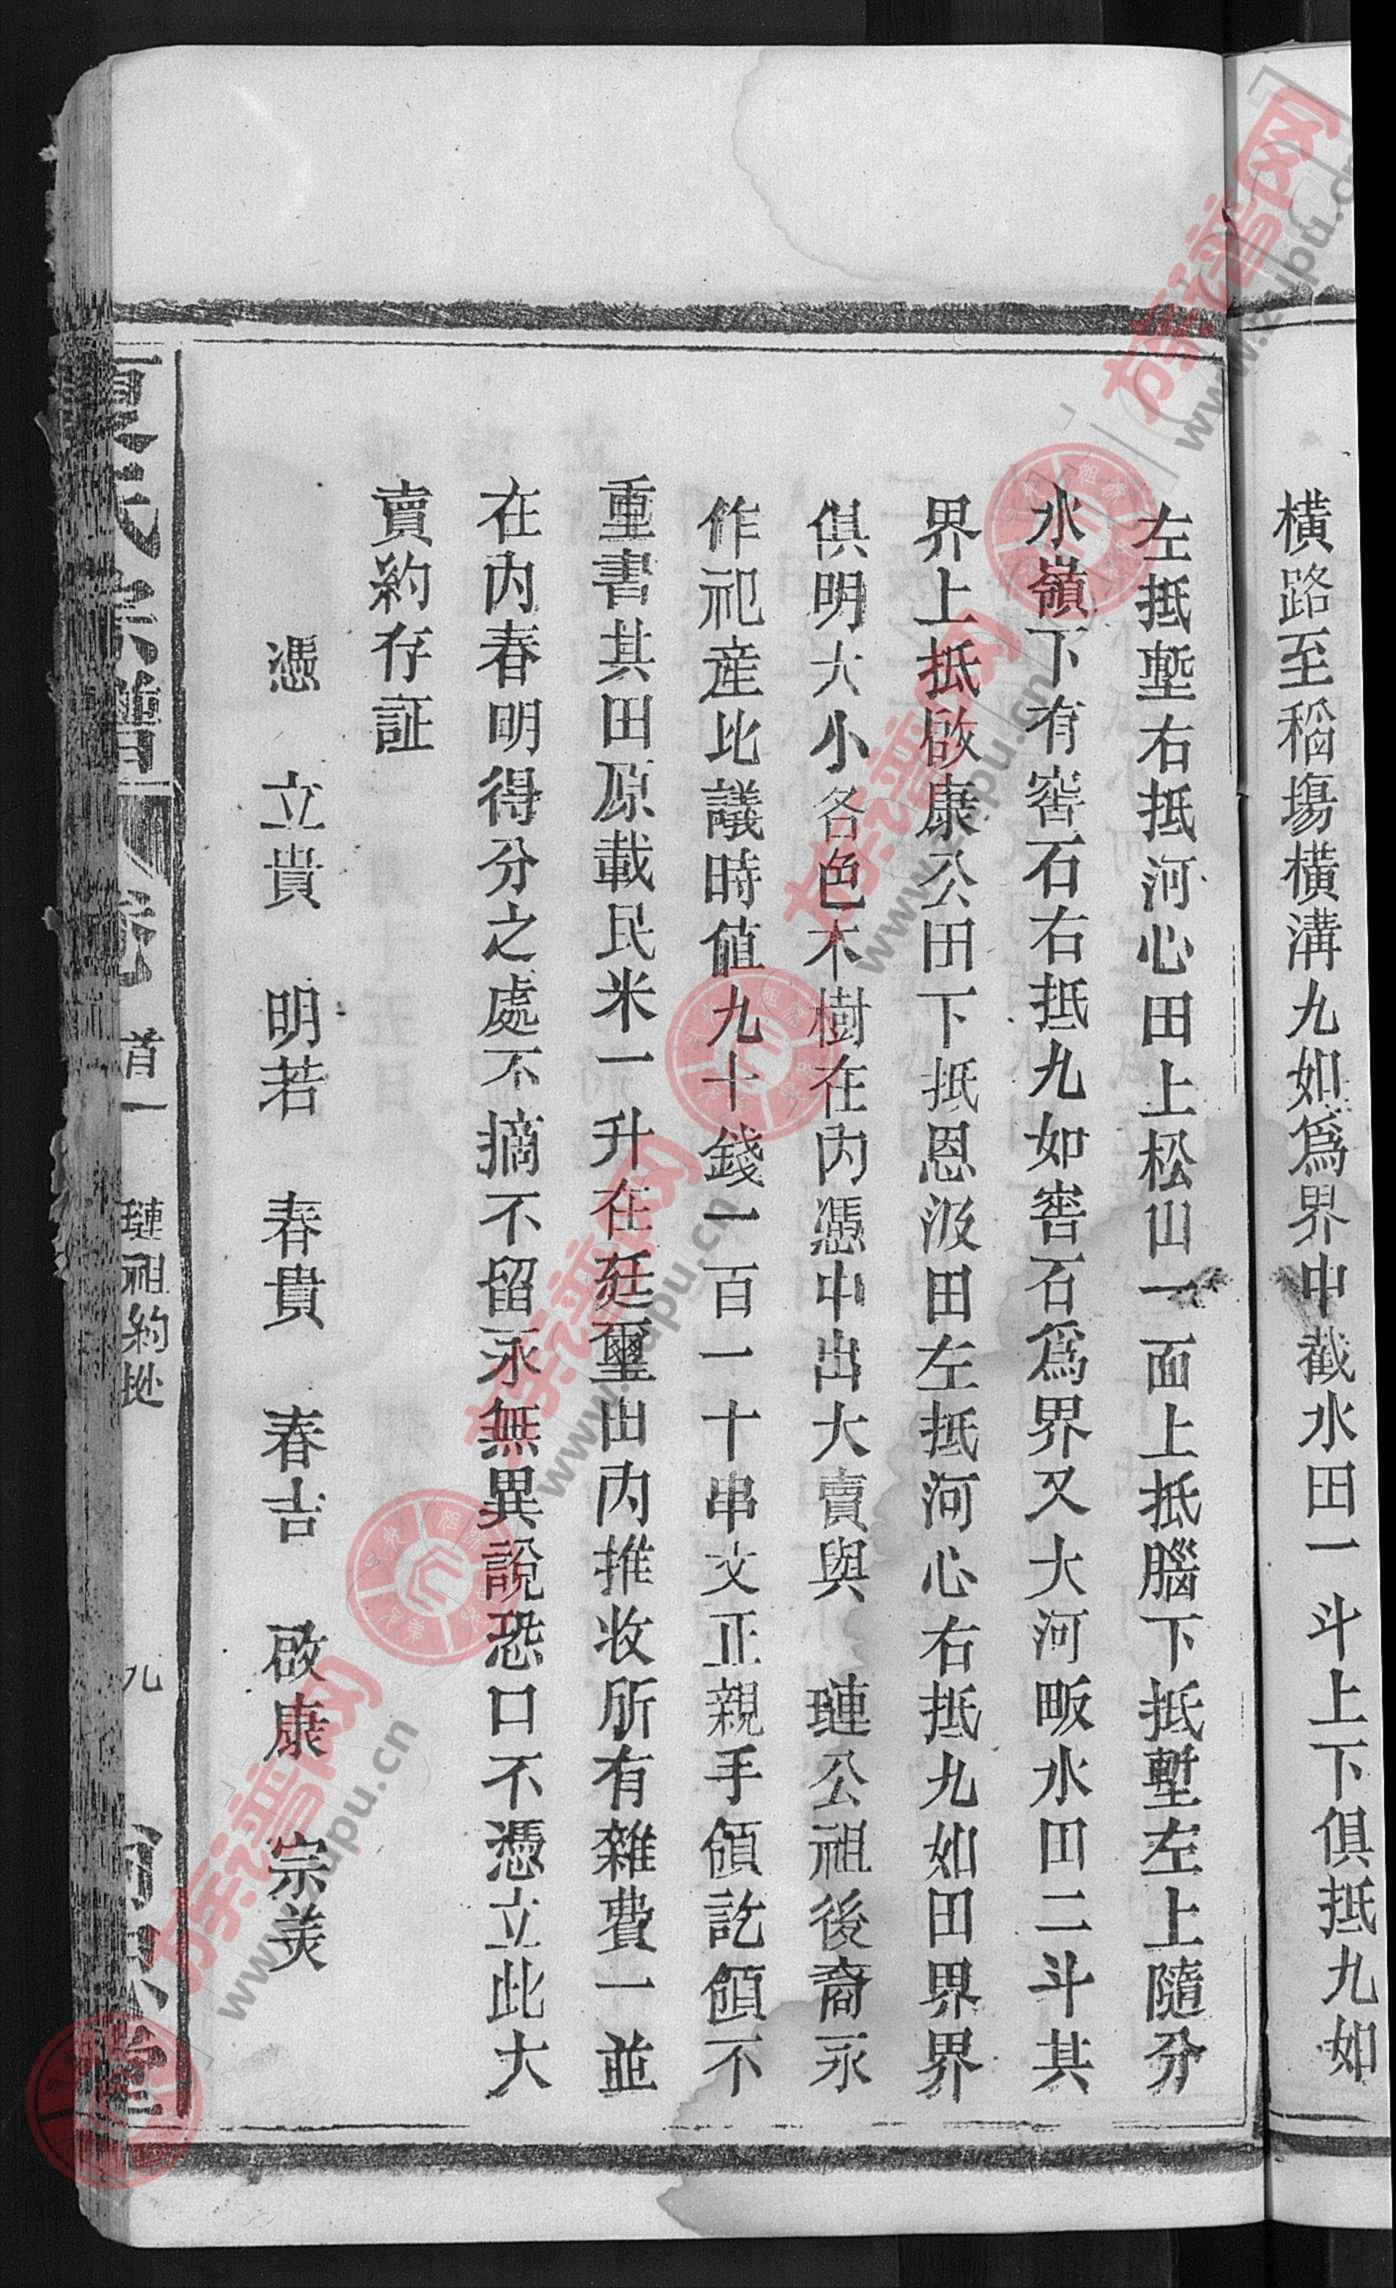 橫路至稻場橫溝九如爲界中截水田一斗上下俱抵九如
左抵塹右抵河心田上松山一面上抵腦下抵塹左上隨分
水嶺下有窖石右抵九如窖石爲界又大河畈水田二斗其
界上抵啟康公田下抵恩汲田左抵河心右抵九如田界界
俱明大小各色木樹在內憑中出大賣與 璉公祖後裔永
作祀産比議時値九十錢一百一十串文正親手領訖領不
重書其田原載民米一升在廷璽出內推收所有雜費一並
在內春明得分之處不摘不留永無異說恐口不憑立此大
賣約存証
憑 立貴 明若 春貴 春吉 啟康 宗美
氏宗譜 卷首一 璉祖約㨿 九 堂
族谱网 www.zupu.cn